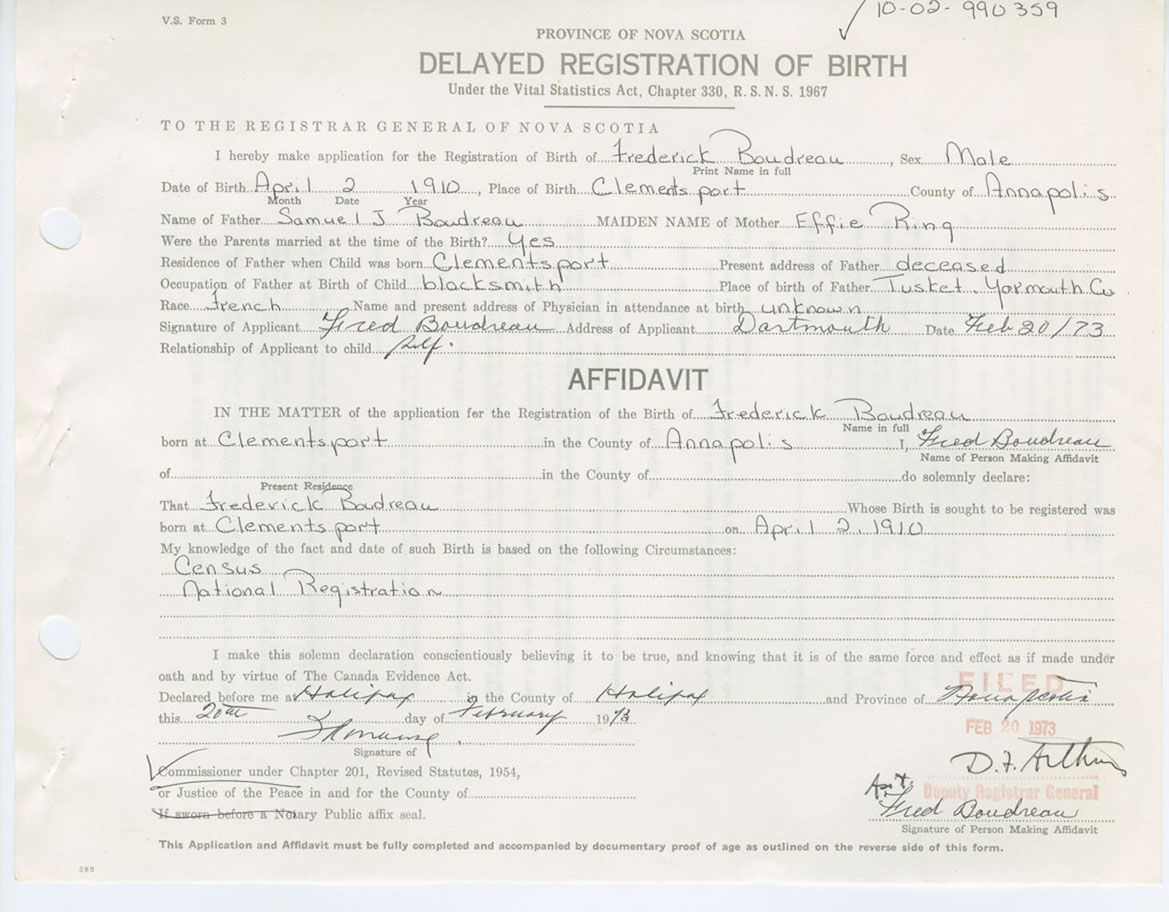 V.S. Form 3
10-02-990359
PROVINCE OF NOVA SCOTIA
DELAYED REGISTRATION OF BIRTH
Under the Vital Statistics Act, Chapter 330, R. S. N. S. 1967
TO THE REGISTRAR GENERAL OF NOVA SCOTIA
I hereby make application for the Registration of Birth of Frederick Boudreau, Sex Male
Print Name in full
Date of Birth April 2 1910, Place of Birth Clementsport County of Annapolis
Month Date Year
Name of Father Samuel J Boudreau MAIDEN NAME of Mother Effie Ring
Were the Parents married at the time of the Birth? Yes
Residence of Father when Child was born Clementsport Present address of Father deceased
Occupation of Father at Birth of Child blacksmith Place of birth of Father Tusket, Yarmouth Co
Race French Name and present address of Physician in attendance at birth unknown
Signature of Applicant Fred Boudreau Address of Applicant Dartmouth Date Feb 20/73
Relationship of Applicant to child self.
AFFIDAVIT
IN THE MATTER of the application for the Registration of the Birth of Frederick Boudreau
Name in full
born at Clementsport in the County of Annapolis I, Fred Boudreau
Name of Person Making Affidavit
of in the County of do solemnly declare:
Present Residence
That Frederick Boudreau Whose Birth is sought to be registered was
born at Clementsport on April 2, 1910
My knowledge of the fact and date of such Birth is based on the following Circumstances:
Census
National Registration
I make this solemn declaration conscientiously believing it to be true, and knowing that it is of the same force and effect as if made under
oath and by virtue of The Canada Evidence Act.
FILED
Declared before me at Halifax in the County of Halifax and Province of Nova Scotia
this 20th day of February 1973
FEB 20 1973
Signature of
D.F. Arthur
Commissioner under Chapter 201, Revised Statutes, 1954,
or Justice of the Peace in and for the County of
Ass't Deputy Registrar General
Fred Boudreau
If sworn before a Notary Public affix seal.
Signature of Person Making Affidavit
This Application and Affidavit must be fully completed and accompanied by documentary proof of age as outlined on the reverse side of this form.